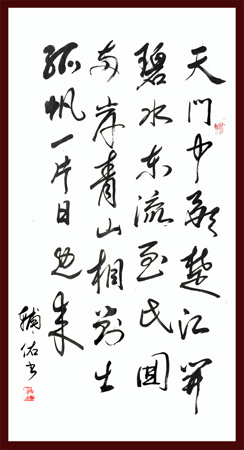 天門中斷楚江開
碧水东流至此回
两岸青山相对出
孤帆一片日边来
輔佑书